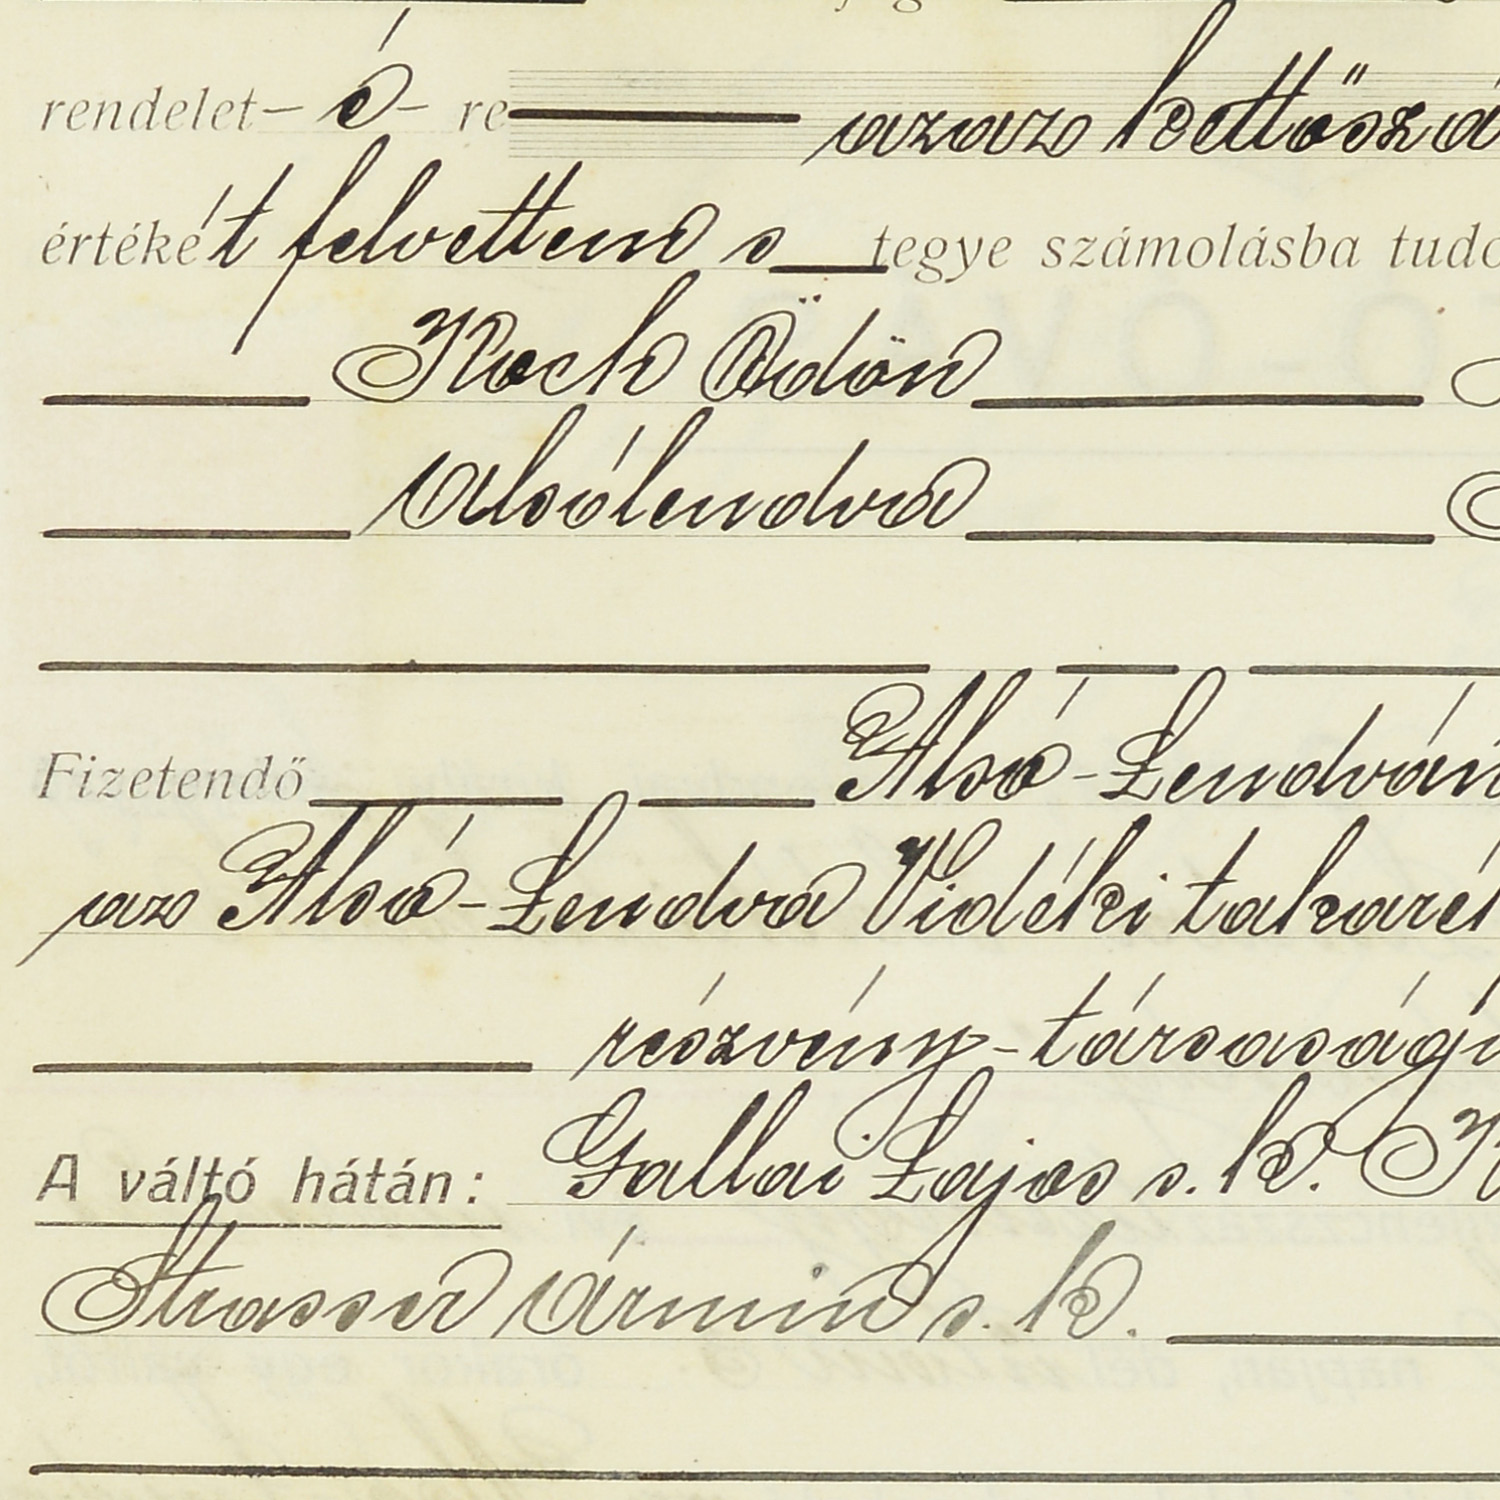 rendelet– é – re azaz kettőszá
értékét felvettem s tegye számolásba tudo
Koch Ödön
Alsólendva
Fizetendő Alsó-Lendván
az Alsó-Lendva Vidéki takarék
részvény-társaságn
A váltó hátán: Gallai Lajos s. k. K
Strasser Ármin s. k.